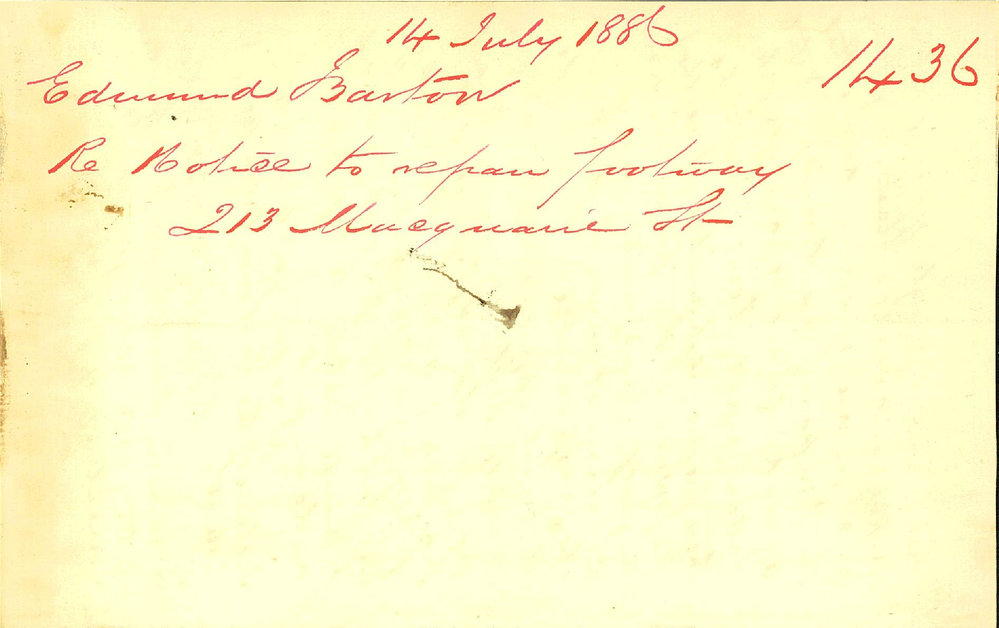 14 July 1886
1436
Edmund Barton
Re Notice to repair footway
213 Macquarie St